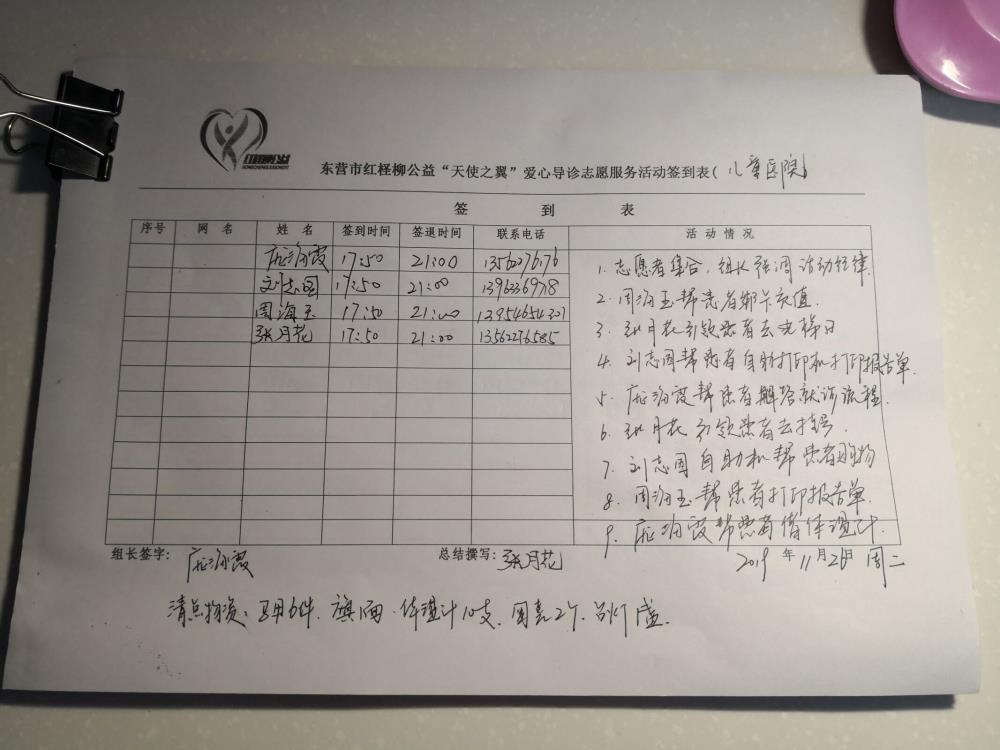 红柽柳
东营市红柽柳公益“天使之翼”爱心导诊志愿服务活动签到表(儿童医院)
签 到 表
序号 网 名 姓 名 签到时间 签退时间 联系电话 活 动 情 况
17:50 21:00
刘志国 17:50 21:00
周海玉 17:50 21:00 13954654301
张月花 17:50 21:00 13562276585
1. 志愿者集合，组长强调活动纪律
2. 周海玉帮患者办卡充值.
3. 张月花引领患者去
4. 刘志国帮患者自助打印机打印报告单.
5. 帮患者解答就诊流程.
6. 张月花引领患者去挂号.
7. 刘志国自助机帮患者购物
8. 周海玉帮患者打印报告单.
9. 帮患者借体温计.
组长签字: 总结撰写: 张月花 2019年11月26日 周二
清点物资: 马甲6件. 旗1面. 体温计10支. 2个. 台灯1盏.